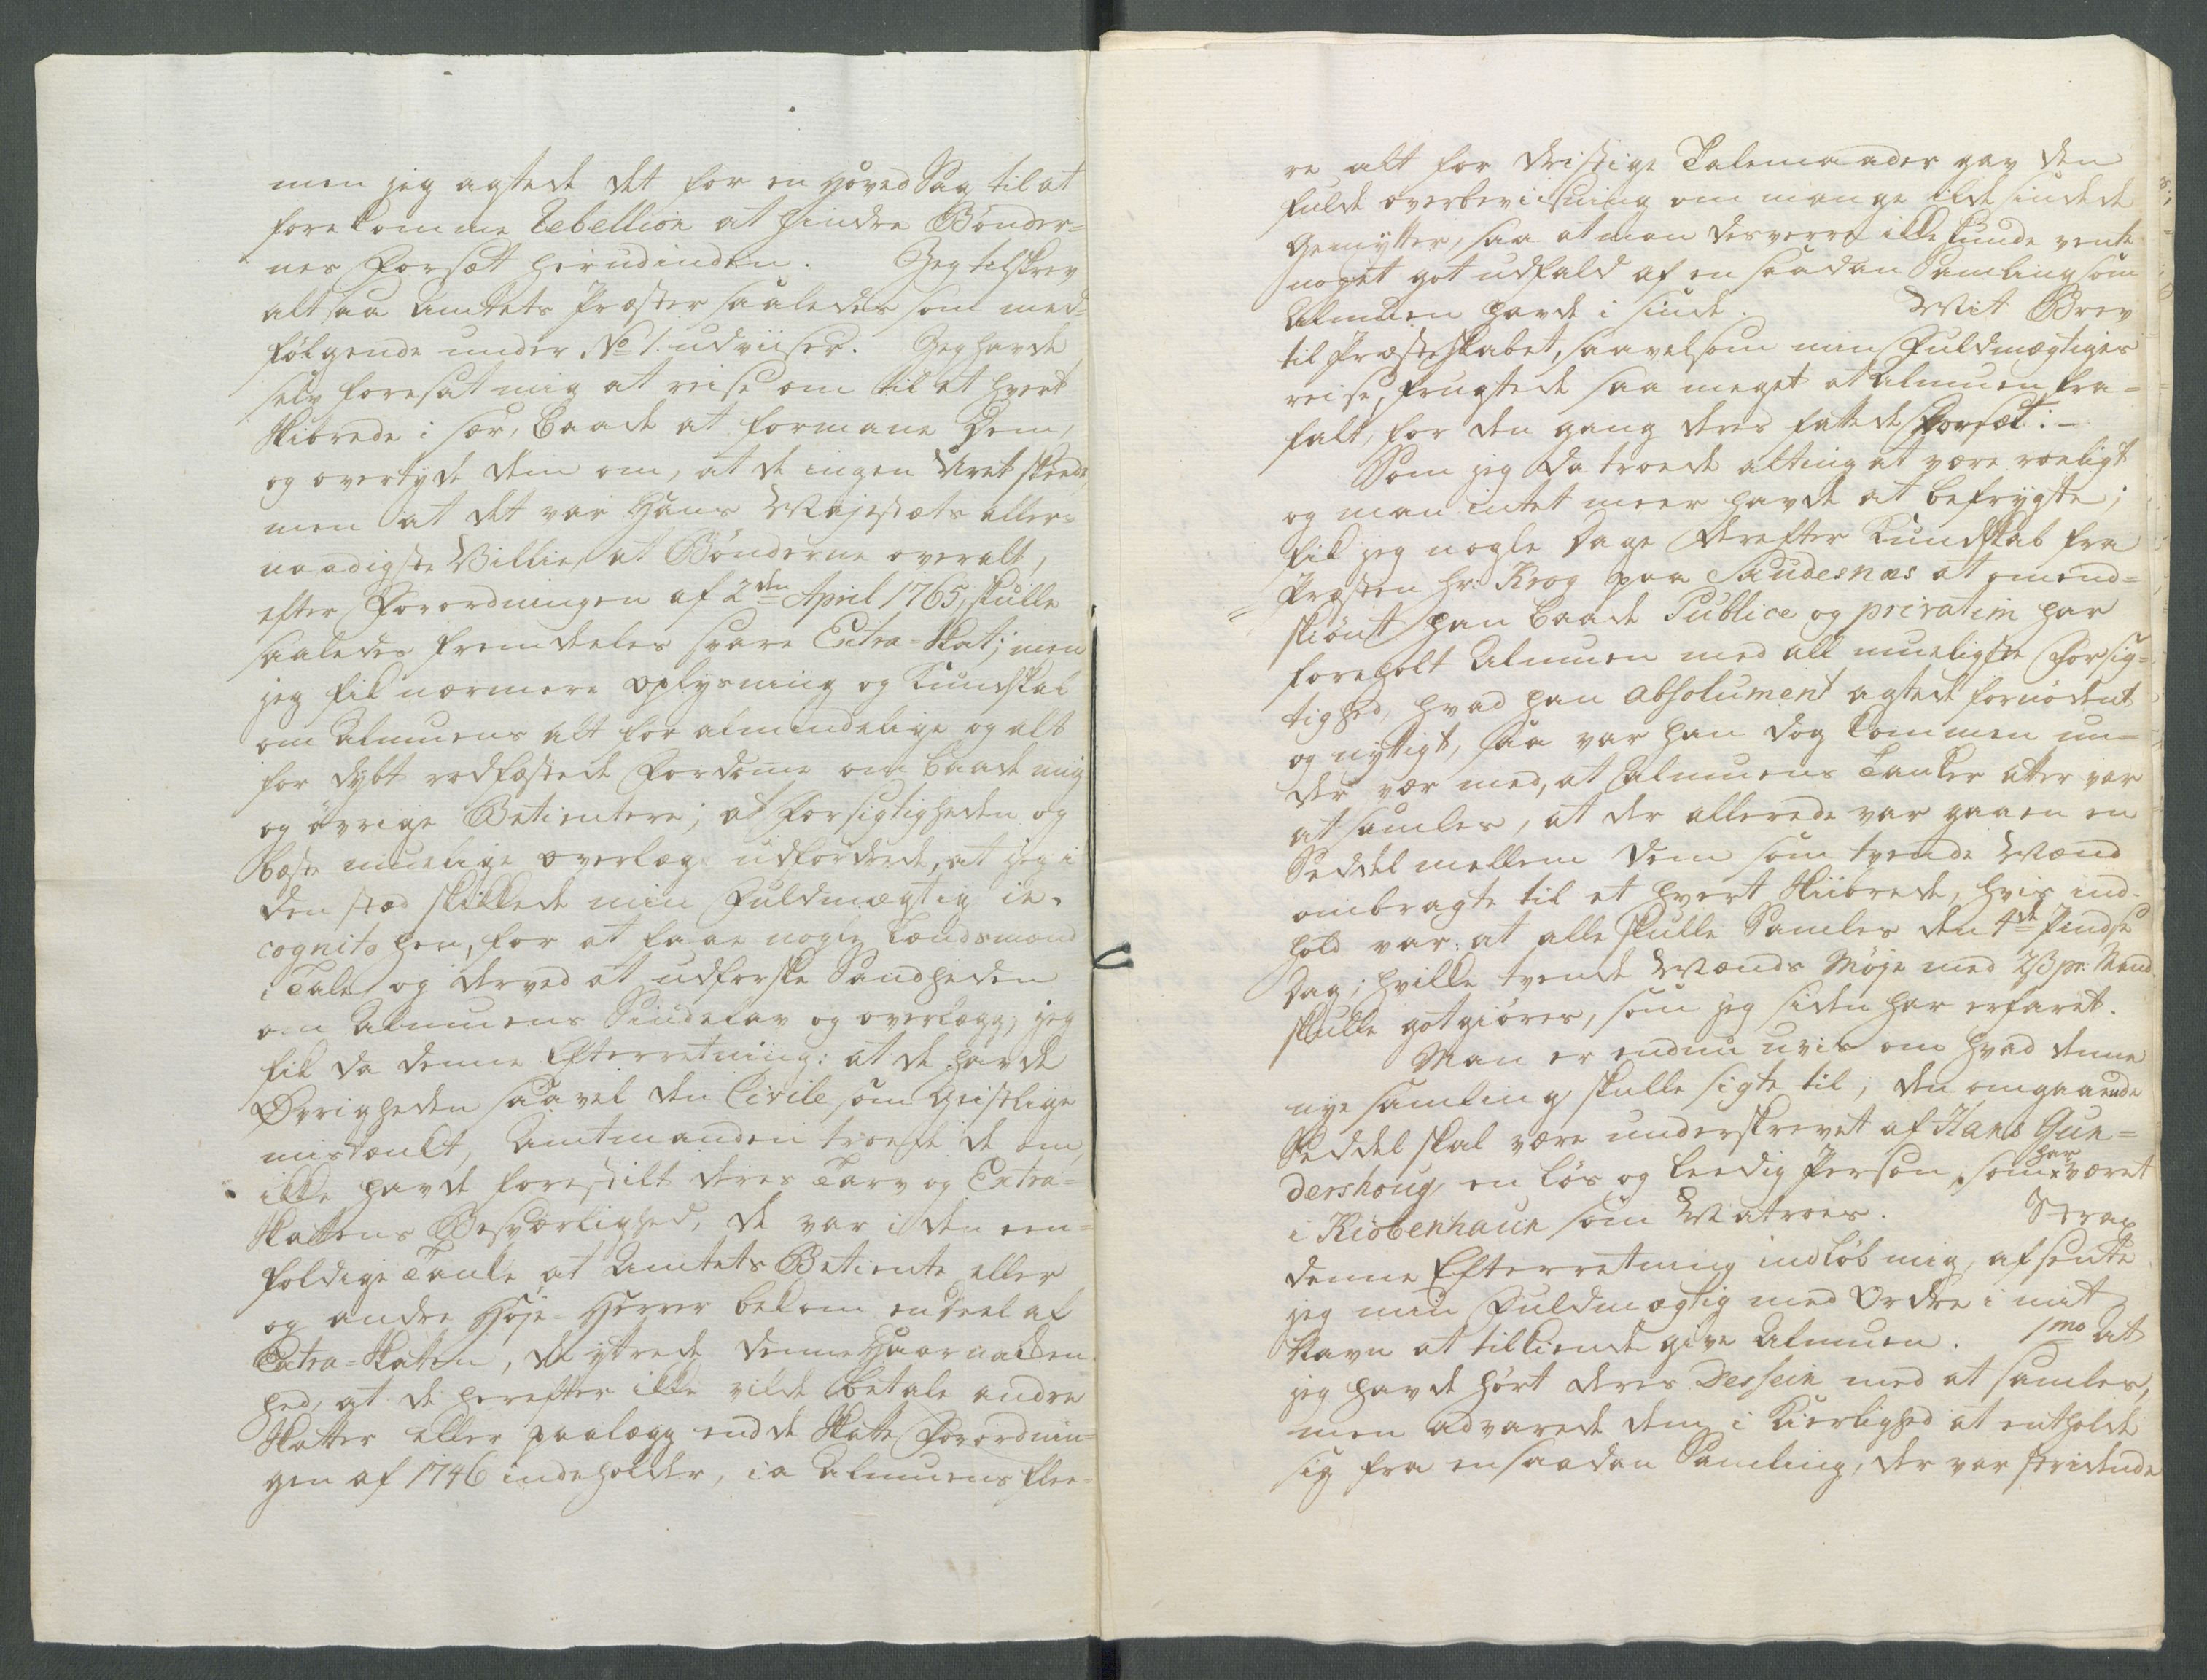 men jeg agtede det for en Hoved Sag til at
forekomme Rebellion at hindre Bønder=
nes Forsæt herudinden. Jeg tilskrev
altsaa Amtets Præster saaledes som med=
følgende under No 1. udviiser. Jeg havde
selv foresat mig at reise om til et hvert
Skibrede i sær, baade at formane Dem,
og overtyde dem om, at de ingen Uret skeede,
men at det var Hans Majestæts aller=
naadigste Villie, at Bønderne overalt,
efter Forordningen af 2den April 1765, skulle
saaledes fremdeeles svare Extra=Skat; men
jeg fik nærmere oplysning og Kundskab
om Almuens alt for almindelige og alt
for dybt rodfæstede Fordomme om baade mig
og øvrige Betientere; at Forsigtigheden og
bæste muelige overlæg udfordrede, at jeg i
den stæd skikkede min Fuldmægtig in=
cognito hen, for at faae nogle Lændsmænd
i Tale og derved at udforske Sandheden
om Almuens Sindelav og overlægg; jeg
fik da denne Efterretning: at de havde
Øvrigheden saavel den Civile som Geistlige
mistænkt, Amtmanden troede de om,
ikke havde forestilt deres Tarv og Extra=
Skattens Besværlighed, de var i den een=
foldige Tanke, at Amtets Betiente eller
og andre Høje Herrer bekom en deel af
Extra=Skatten, de yttrede denne Haarnakken
hed, at de herefter ikke vilde betale andre
Skatter eller paalægg end de Skatte Forordnin=
gen af 1746 indeholder, ia Almuens flee=
re alt for dristige Talemaader gav den
fulde overbeviisning om mange ilde sindede
Gemytter, saa at man desverre ikke kunde vente
noget got udfald af en saadan Samling som
Almuen havde i sinde. Mit Brev
til Præsteskabet, saavelsom min Fuldmægtiges
reise, frugtede saa meget at Almuen fra=
falt, for den gang deres fattede Forsæt:—
Som jeg da troede alting at være roeligt
og man intet meer havde at befrygte;
fik jeg nogle Dage derefter Kundskab fra
Præsten hr: Krog paa Saudesnæs at omend=
skiønt han baade Publice og privatim har
foreholt Almuen med all mueligste Forsig=
tighed, hvad han absolument agtede fornødent
og nyttigt, saa var han dog kommen un=
der vær med, at Almuens Tanker atter var
at samles, at der allerede var gaaen en
Seddel mellem dem som tvende Mænd
ombragte til et hvert Skiibrede, hvis ind=
hold var: at alle skulle Samles den 4de Pindse
Dag; hvilke tvende Mænds Møje med 2ß pr. Mand
skulle gotgiøres, som jeg siden har erfaret.
Man er endnu uvis om hvad denne
nye samling skulle sigte til; den omgaaende
Seddel skal være underskrevet af Hans Gun=
dershoug, en løs og leedig Person, som har været
i Kiøbenhaun som Matroes. Strax
denne Efterretning indløb mig, afsente
jeg min Fuldmægtig med Ordre i mit
Navn at tilkiende give Almuen. 1mo At
jeg havde hørt deres Dessein med at samles,
men advarede dem i Kierlighed at entholde
sig fra en saadan Samling, der var stridende